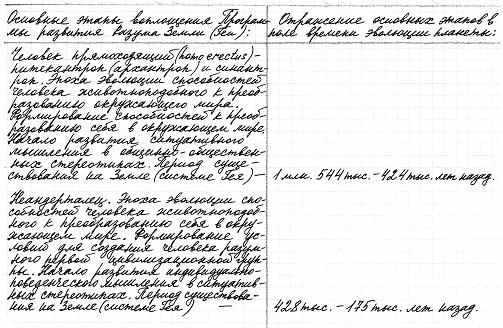 Основные этапы воплощения Програм-
мы развития Разума Земли (Геи):
Отражение основных этапов в
поле времени эволюции планеты:
Человек прямоходящий (homo erectus) –
питекантроп (архантроп) и синант-
роп. Эпоха эволюции способностей
человека животноподобного к преоб-
разованию окружающего мира.
Формирование способностей к преоб-
разованию себя в окружающем мире.
Начало развития ситуативного
мышления в общинно-обществен-
ных стереотипах. Период суще-
ствования на Земле (системе Гея) –
1 млн. 544 тыс. – 424 тыс. лет назад.
Неандерталец. Эпоха эволюции спо-
собностей человека животноподоб-
ного к преобразованию себя в окру-
жающем мире. Формирование ус-
ловий для создания человека разум-
ного первой цивилизационной груп-
пы. Начало развития индивидуально-
поведенческого мышления в ситуатив-
ных стереотипах. Период существова-
ния на Земле (системе Гея) –
428 тыс. – 175 тыс. лет назад.